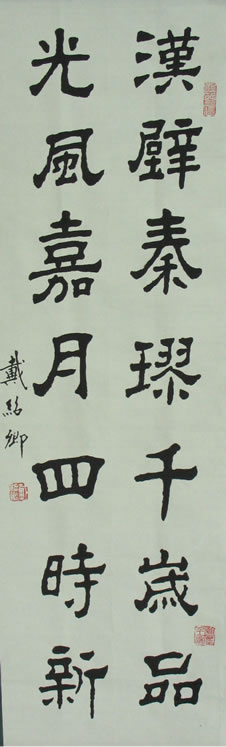 漢壁秦璆千歲品
光風嘉月四時新
戴紹卿